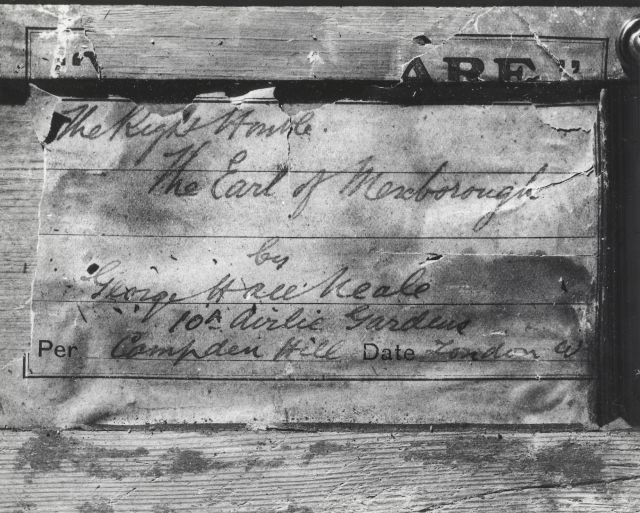 ARE"
The Right Honble.
The Earl of Mexborough
by
George Hall Neale
10A Airlie Gardens
Per Campden Hill Date London W